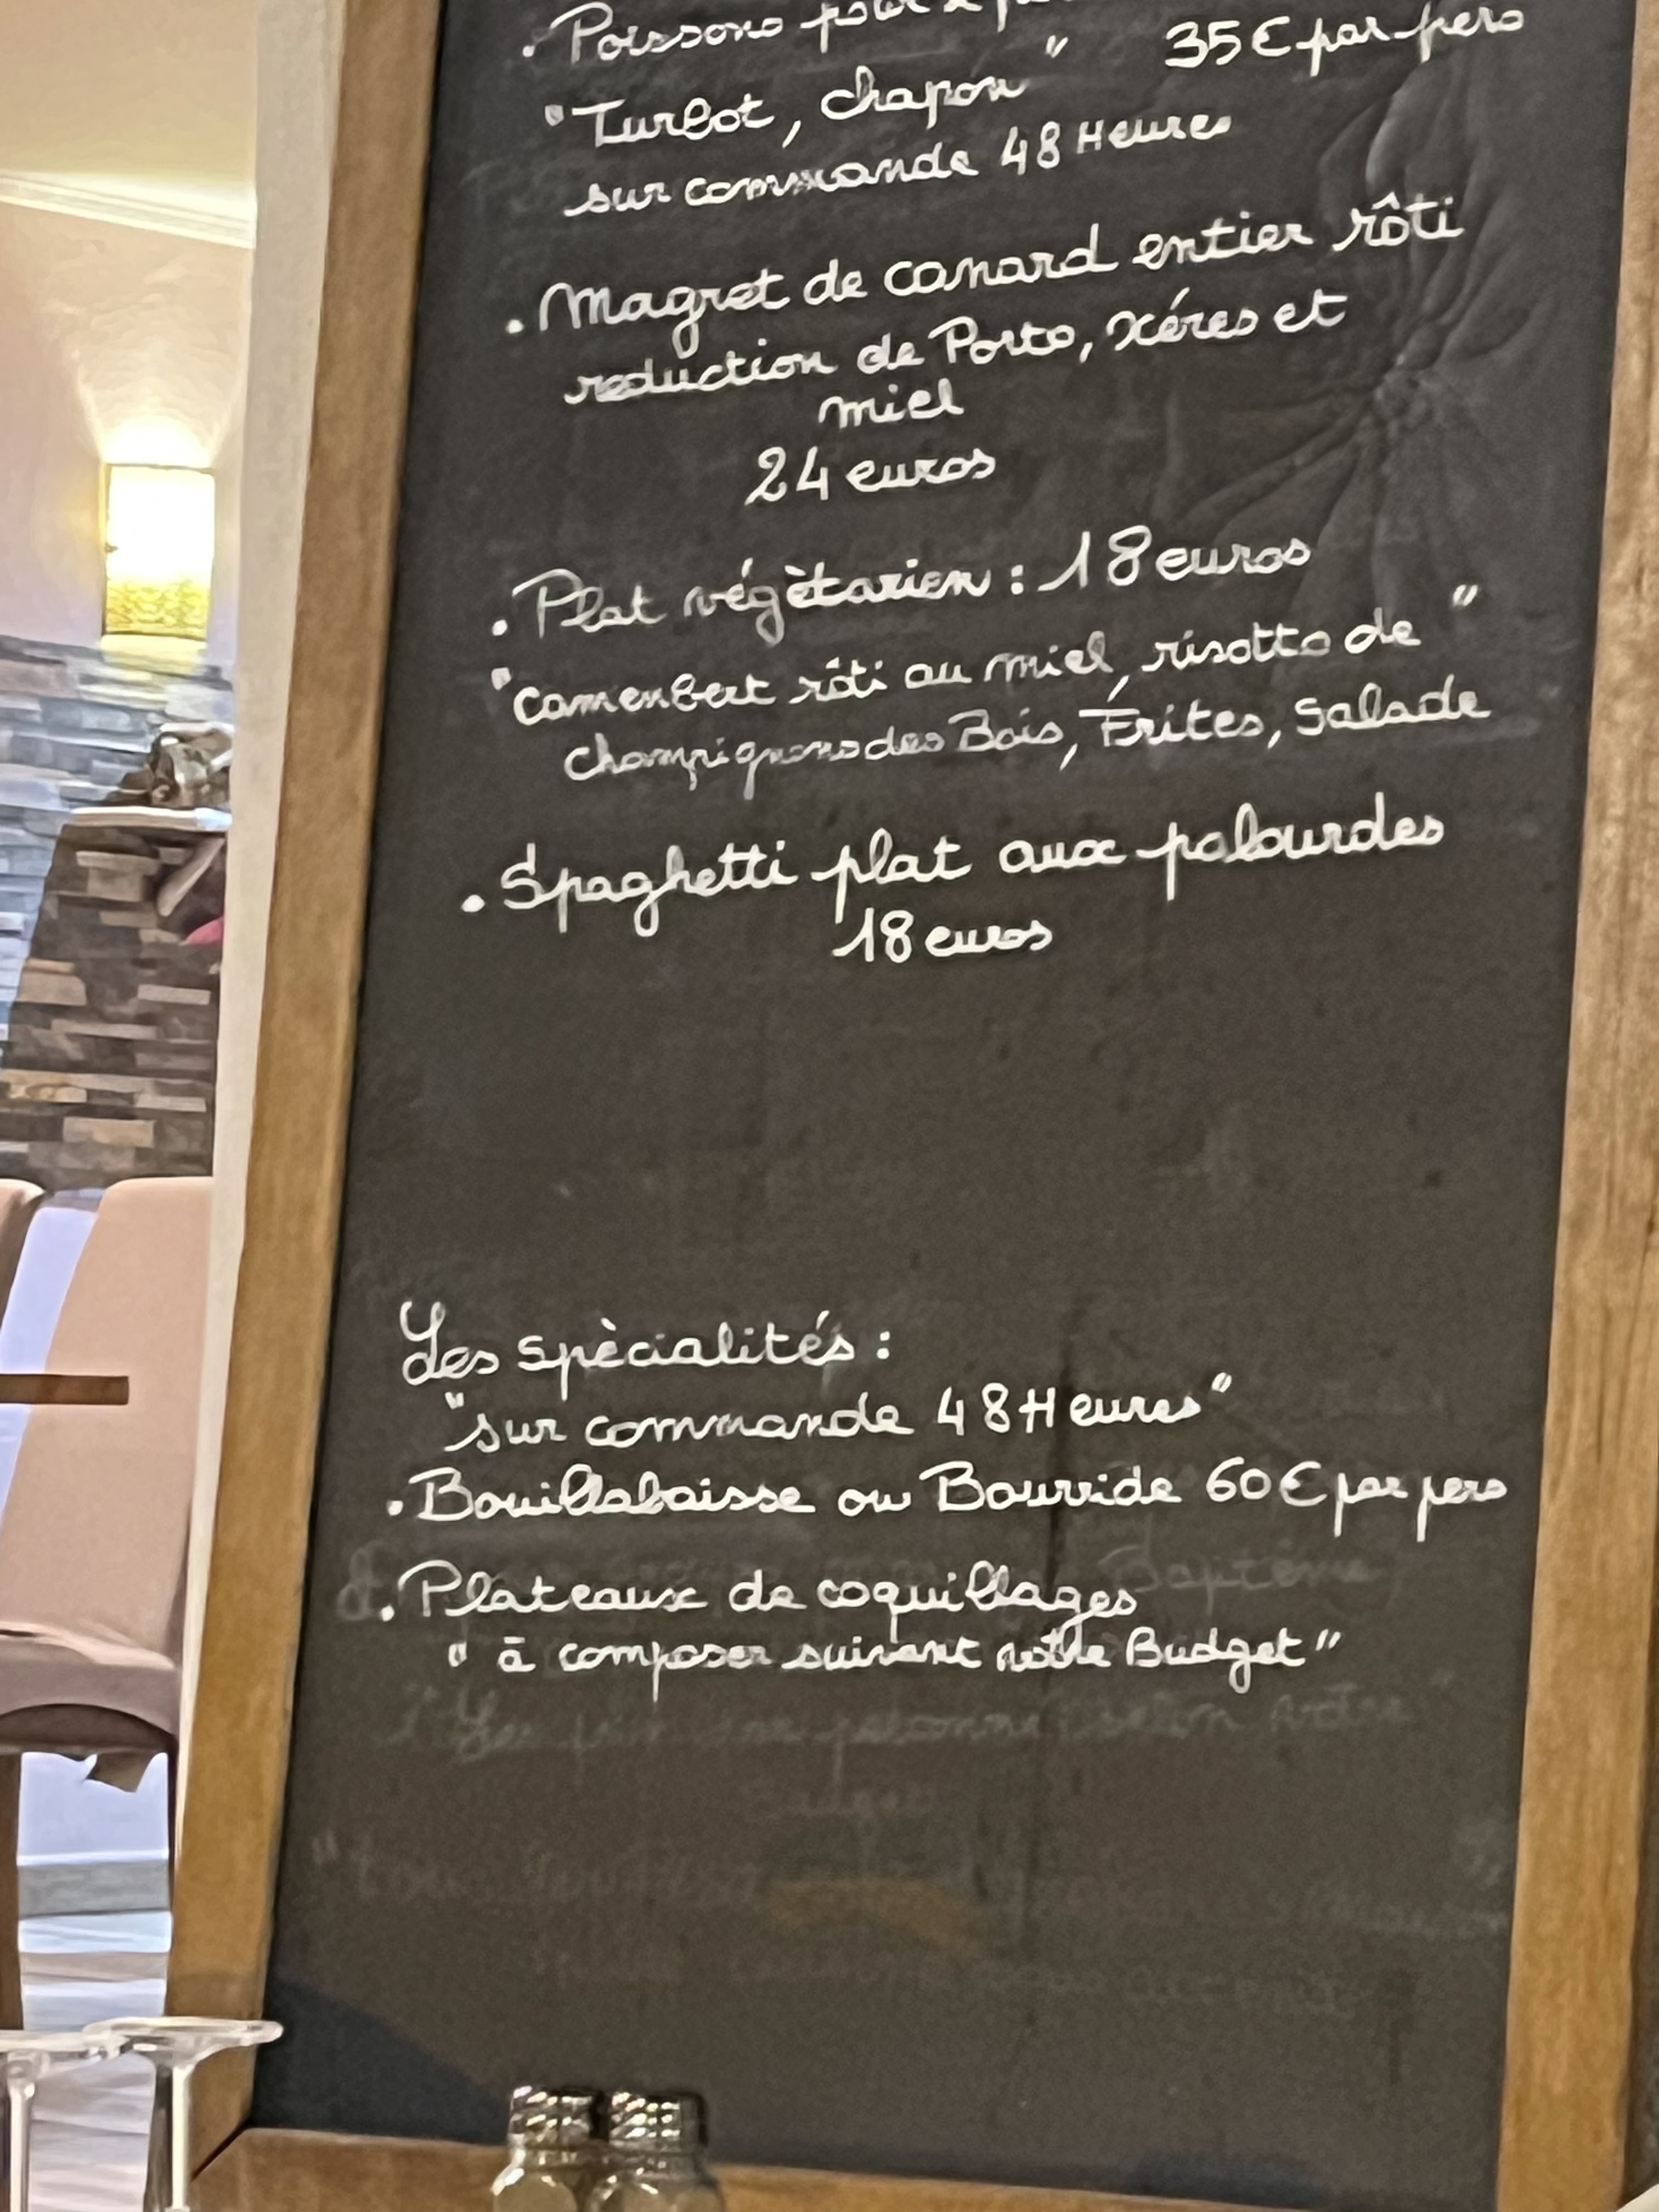 . Poissons pour 2
"Turbot, chapon" 35€ par pers
sur commande 48 Heures
. Magret de canard entier rôti
reduction de Porto, xéres et
miel
24 euros
. Plat végètarien : 18 euros
"camenbert rôti au miel, risotto de"
champignons des Bois, Frites, Salade
. Spaghetti plat aux palourdes
18 euros
Les spècialités :
"sur commande 48 Heures"
. Bouillabaisse ou Bourride 60€ par pers
. Plateaux de coquillages
" à composer suivant notre Budget"